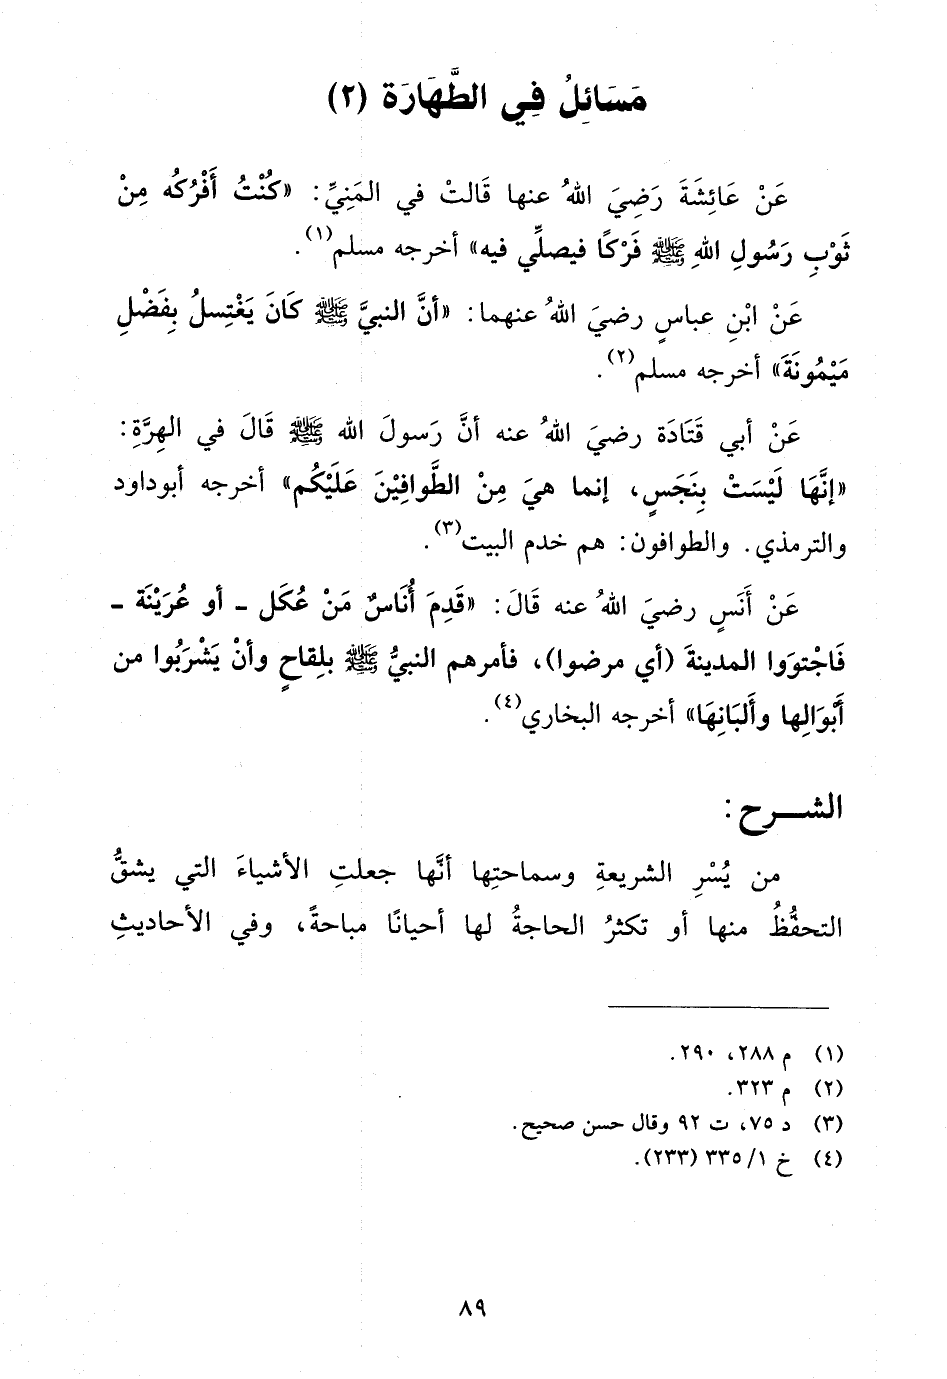 مَسَائِلُ فِي الطَّهَارَة (٢)
عَنْ عَائِشَةَ رَضِيَ اللهُ عنها قَالتْ في المَنِيِّ: «كُنْتُ أَفْرُكُه مِنْ
ثَوْبِ رَسُولِ اللهِ ﷺ فَرْكًا فيصلِّي فيه» أخرجه مسلم(١).
عَنْ ابْنِ عباسٍ رضيَ اللهُ عنهما: «أنَّ النبيَّ ﷺ كَانَ يَغْتِسلُ بِفَضْلِ
مَيْمُونَةَ» أخرجه مسلم(٢).
عَنْ أبي قَتَادَة رضيَ اللهُ عنه أنَّ رَسولَ الله ﷺ قَالَ في الهِرَّةِ:
«إنَّهَا لَيْسَتْ بِنَجَسٍ، إنما هيَ مِنْ الطَّوافِيْنَ عَلَيْكُم» أخرجه أبوداود
والترمذي. والطوافون: هم خدم البيت(٣).
عَنْ أَنَسٍ رضيَ اللهُ عنه قَالَ: «قَدِمَ أُنَاسٌ مَنْ عُكَل ـ أو عُرَيْنَة ـ
فَاجْتوَوا المدينةَ (أي مرضوا)، فأمرهم النبيُّ ﷺ بلِقاحٍ وأنْ يَشْرَبُوا من
أَبْوَالِها وأَلبَانِهَا» أخرجه البخاري(٤).
الشـــرح:
من يُسْرِ الشريعةِ وسماحتِها أنَّها جعلتِ الأشياءَ التي يشقُّ
التحفُّظُ منها أو تكثرُ الحاجةُ لها أحيانًا مباحةً، وفي الأحاديثِ
(١) م ٢٨٨، ٢٩٠.
(٢) م ٣٢٣.
(٣) د ٧٥، ت ٩٢ وقال حسن صحيح.
(٤) خ ١/ ٣٣٥ (٢٣٣).
٨٩